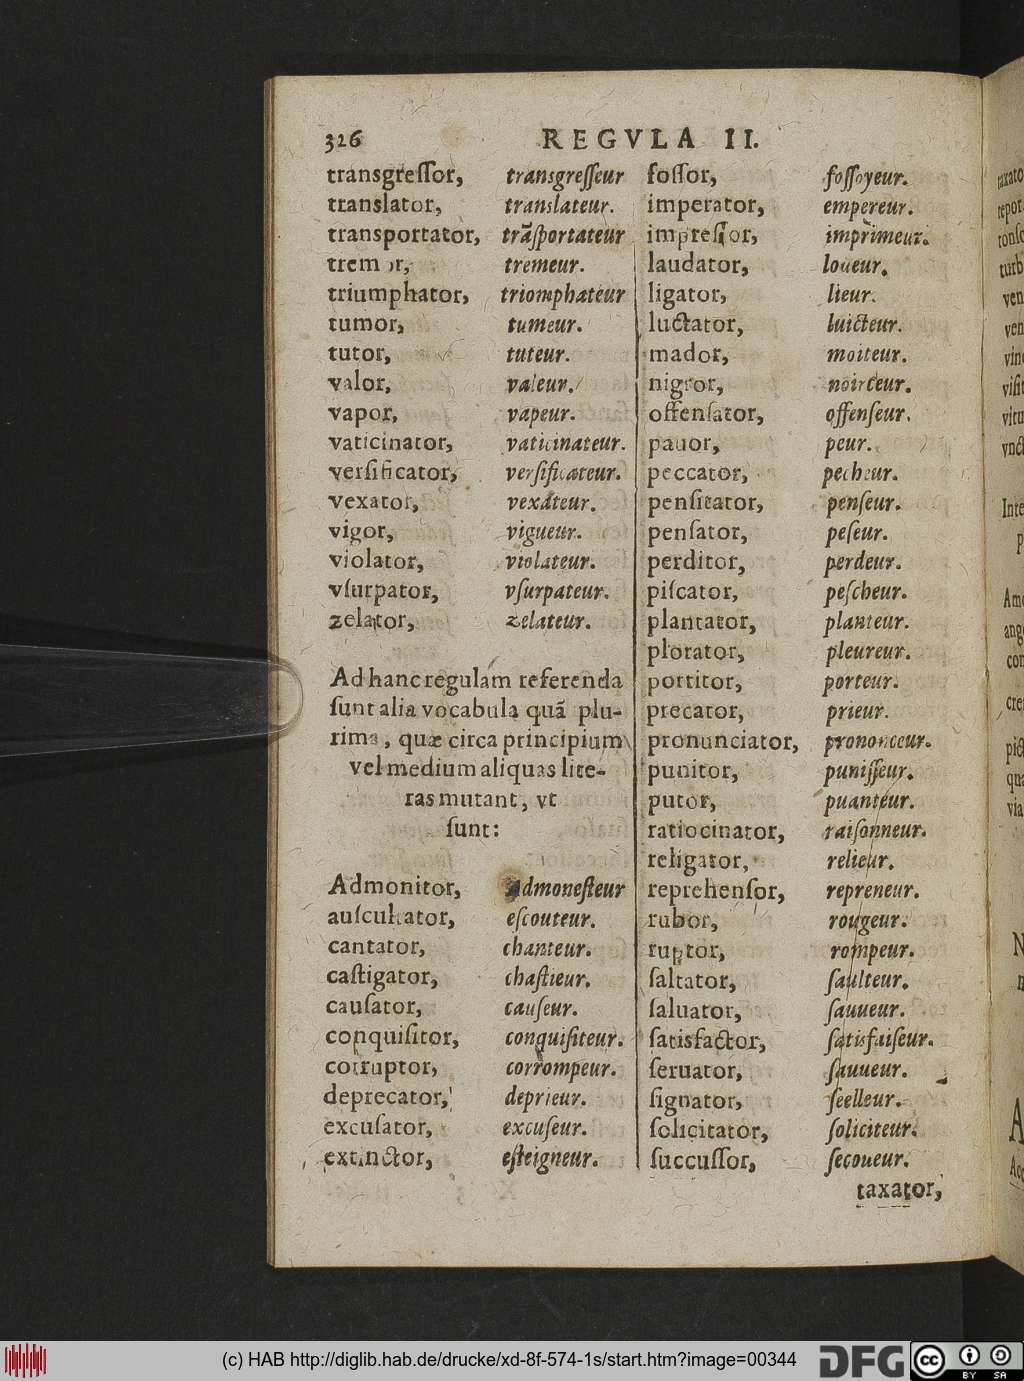 326 REGVLA II.
transgreſſor, transgreſſeur
translator, translateur.
transportator, trãſportateur
tremor, tremeur.
triumphator, triomphateur
tumor, tumeur.
tutor, tuteur.
valor, valeur.
vapor, vapeur.
vaticinator, vaticinateur.
verſificator, verſificateur.
vexator, vexateur.
vigor, vigueur.
violator, violateur.
vſurpator, vſurpateur.
zelator, zelateur.
Ad hanc regulam referenda
ſunt alia vocabula quã plu-
rima, quæ circa principium
vel medium aliquas lite-
ras mutant, vt
ſunt:
Admonitor, admoneſteur
auſcultator, eſcouteur.
cantator, chanteur.
caſtigator, chaſtieur.
cauſator, cauſeur.
conquiſitor, conquiſiteur.
corruptor, corrompeur.
deprecator, deprieur.
excuſator, excuſeur.
extinctor, eſteigneur.
foſſor, foſſoyeur.
imperator, empereur.
impreſſor, imprimeur.
laudator, loueur.
ligator, lieur.
luctator, luicteur.
mador, moiteur.
nigror, noirceur.
offenſator, offenſeur.
pauor, peur.
peccator, pecheur.
penſitator, penſeur.
penſator, peſeur.
perditor, perdeur.
piſcator, peſcheur.
plantator, planteur.
plorator, pleureur.
portitor, porteur.
precator, prieur.
pronunciator, prononceur.
punitor, puniſſeur.
putor, puanteur.
ratiocinator, raiſonneur.
religator, relieur.
reprehenſor, repreneur.
rubor, rougeur.
ruptor, rompeur.
ſaltator, ſaulteur.
ſaluator, ſauueur.
ſatisfactor, ſatisfaiſeur.
ſeruator, ſauueur.
ſignator, ſeelleur.
ſolicitator, ſoliciteur.
ſuccuſſor, ſecoueur.
taxator,
(c) HAB http://diglib.hab.de/drucke/xd-8f-574-1s/start.htm?image=00344
DFG
cc BY SA